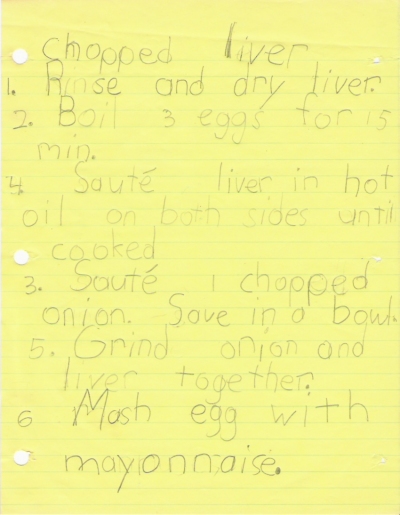 chopped liver
1. Rinse and dry liver.
2. Boil 3 eggs for 15
min.
4. Sauté liver in hot
oil on both sides until
cooked
3. Sauté 1 chopped
onion. Save in a bowl.
5. Grind onion and
liver together.
6 Mash egg with
mayonnaise.